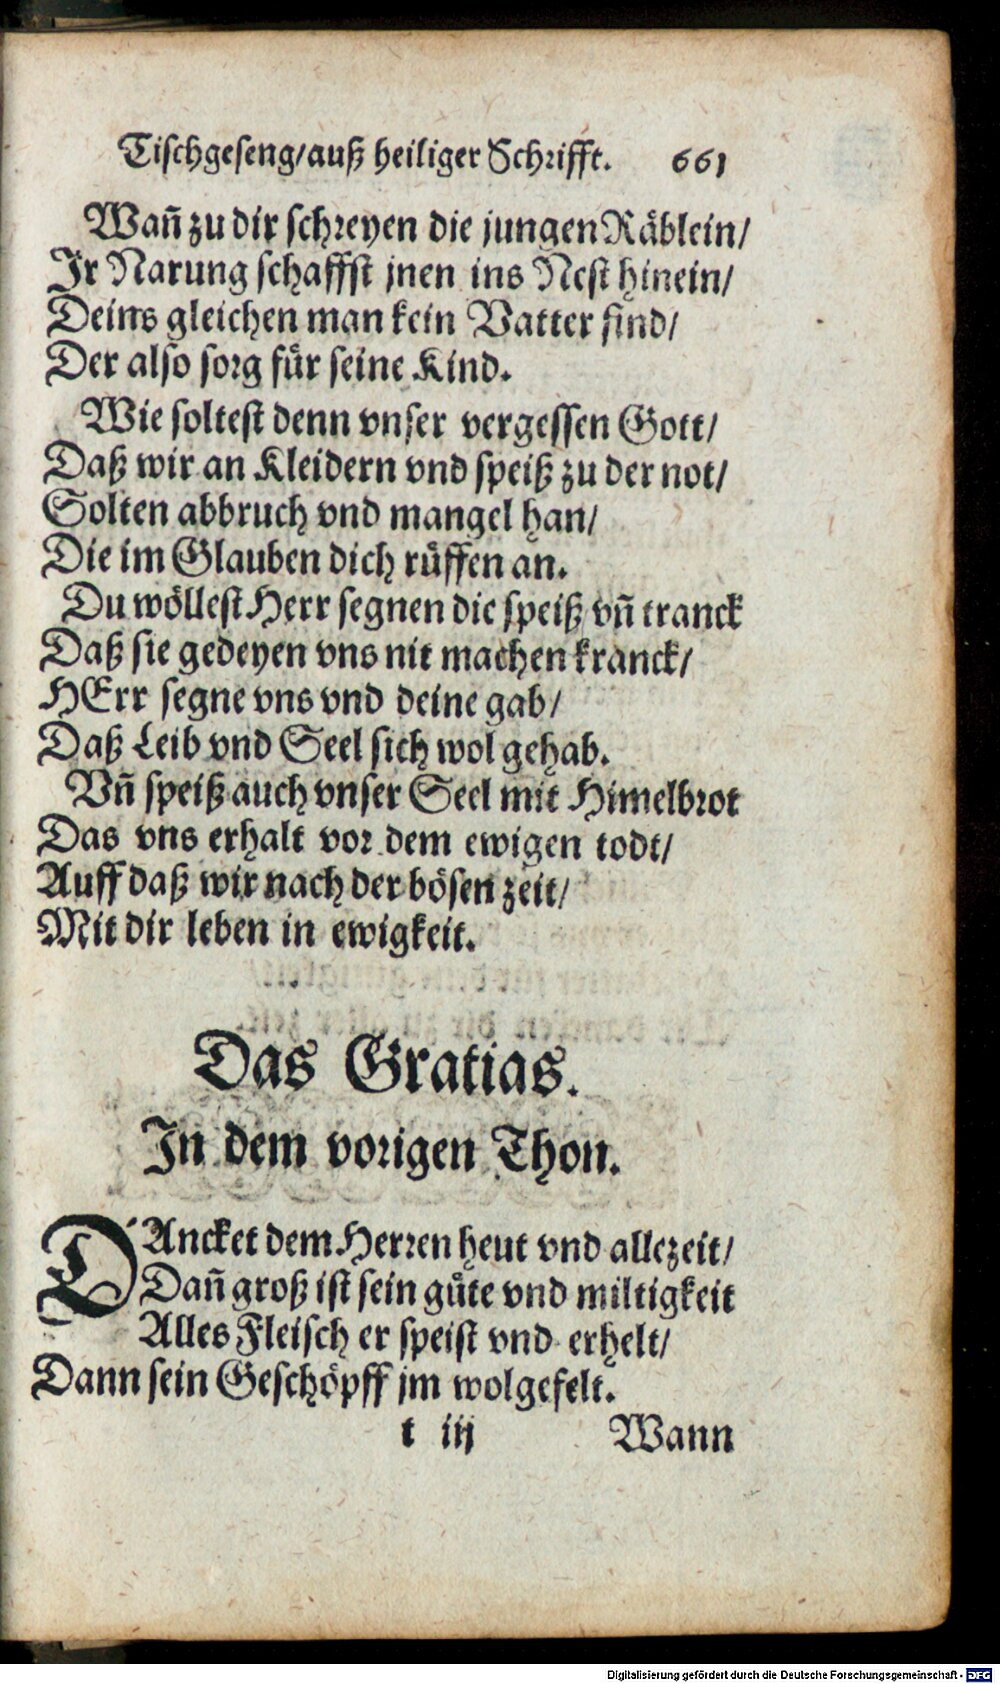 Tischgeseng/auß heiliger Schrifft. 661
Wañ zu dir schreyen die jungen Räblein/
Jr Narung schaffst jnen ins Nest hinein/
Deins gleichen man kein Vatter find/
Der also sorg für seine Kind.
Wie soltest denn vnser vergessen Gott/
Daß wir an Kleidern vnd speiß zu der not/
Solten abbruch vnd mangel han/
Die im Glauben dich rüffen an.
Du wöllest Herr segnen die speiß vñ tranck
Daß sie gedeyen vns nit machen kranck/
HErr segne vns vnd deine gab/
Daß Leib vnd Seel sich wol gehab.
Vñ speiß auch vnser Seel mit Himelbrot
Das vns erhalt vor dem ewigen todt/
Auff daß wir nach der bösen zeit/
Mit dir leben in ewigkeit.
Das Gratias.
In dem vorigen Thon.
DAncket dem Herren heut vnd allezeit/
Dañ groß ist sein güte vnd miltigkeit
Alles Fleisch er speist vnd erhelt/
Dann sein Geschöpff jm wolgefelt.
t iij Wann
Digitalisierung gefördert durch die Deutsche Forschungsgemeinschaft - DFG